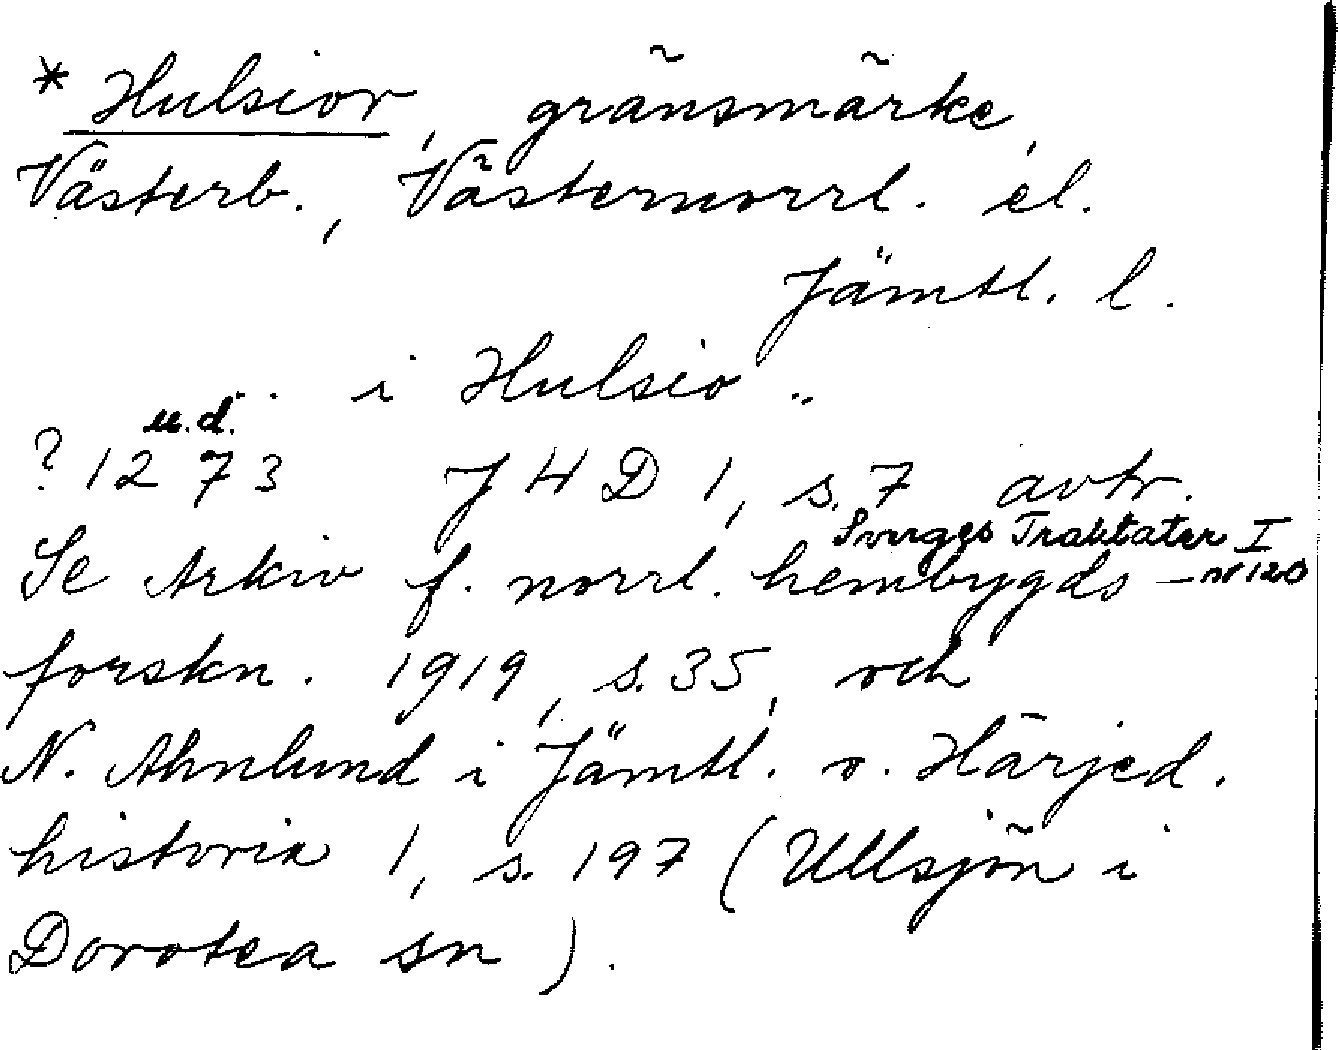 * Hulsior, gränsmärke,
Västerb., Västernorrl. el.
Jämtl. l.
... i Hulsio ..
u.d.
? 1273 JHD 1, s. 7 avtr.
Sverges Traktater I
nr 120
Se Arkiv f. norrl. hembygds-
forskn. 1919, s. 35, och
N. Ahnlund i Jämtl. o. Härjed.
historia 1, s. 197 (Ullsjön i
Dorotea sn).